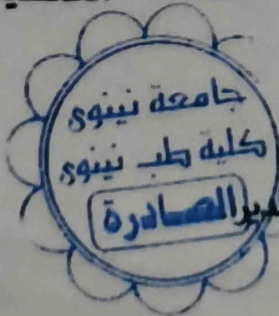 جامعة نينوى
كلية طب نينوى
الصادرة